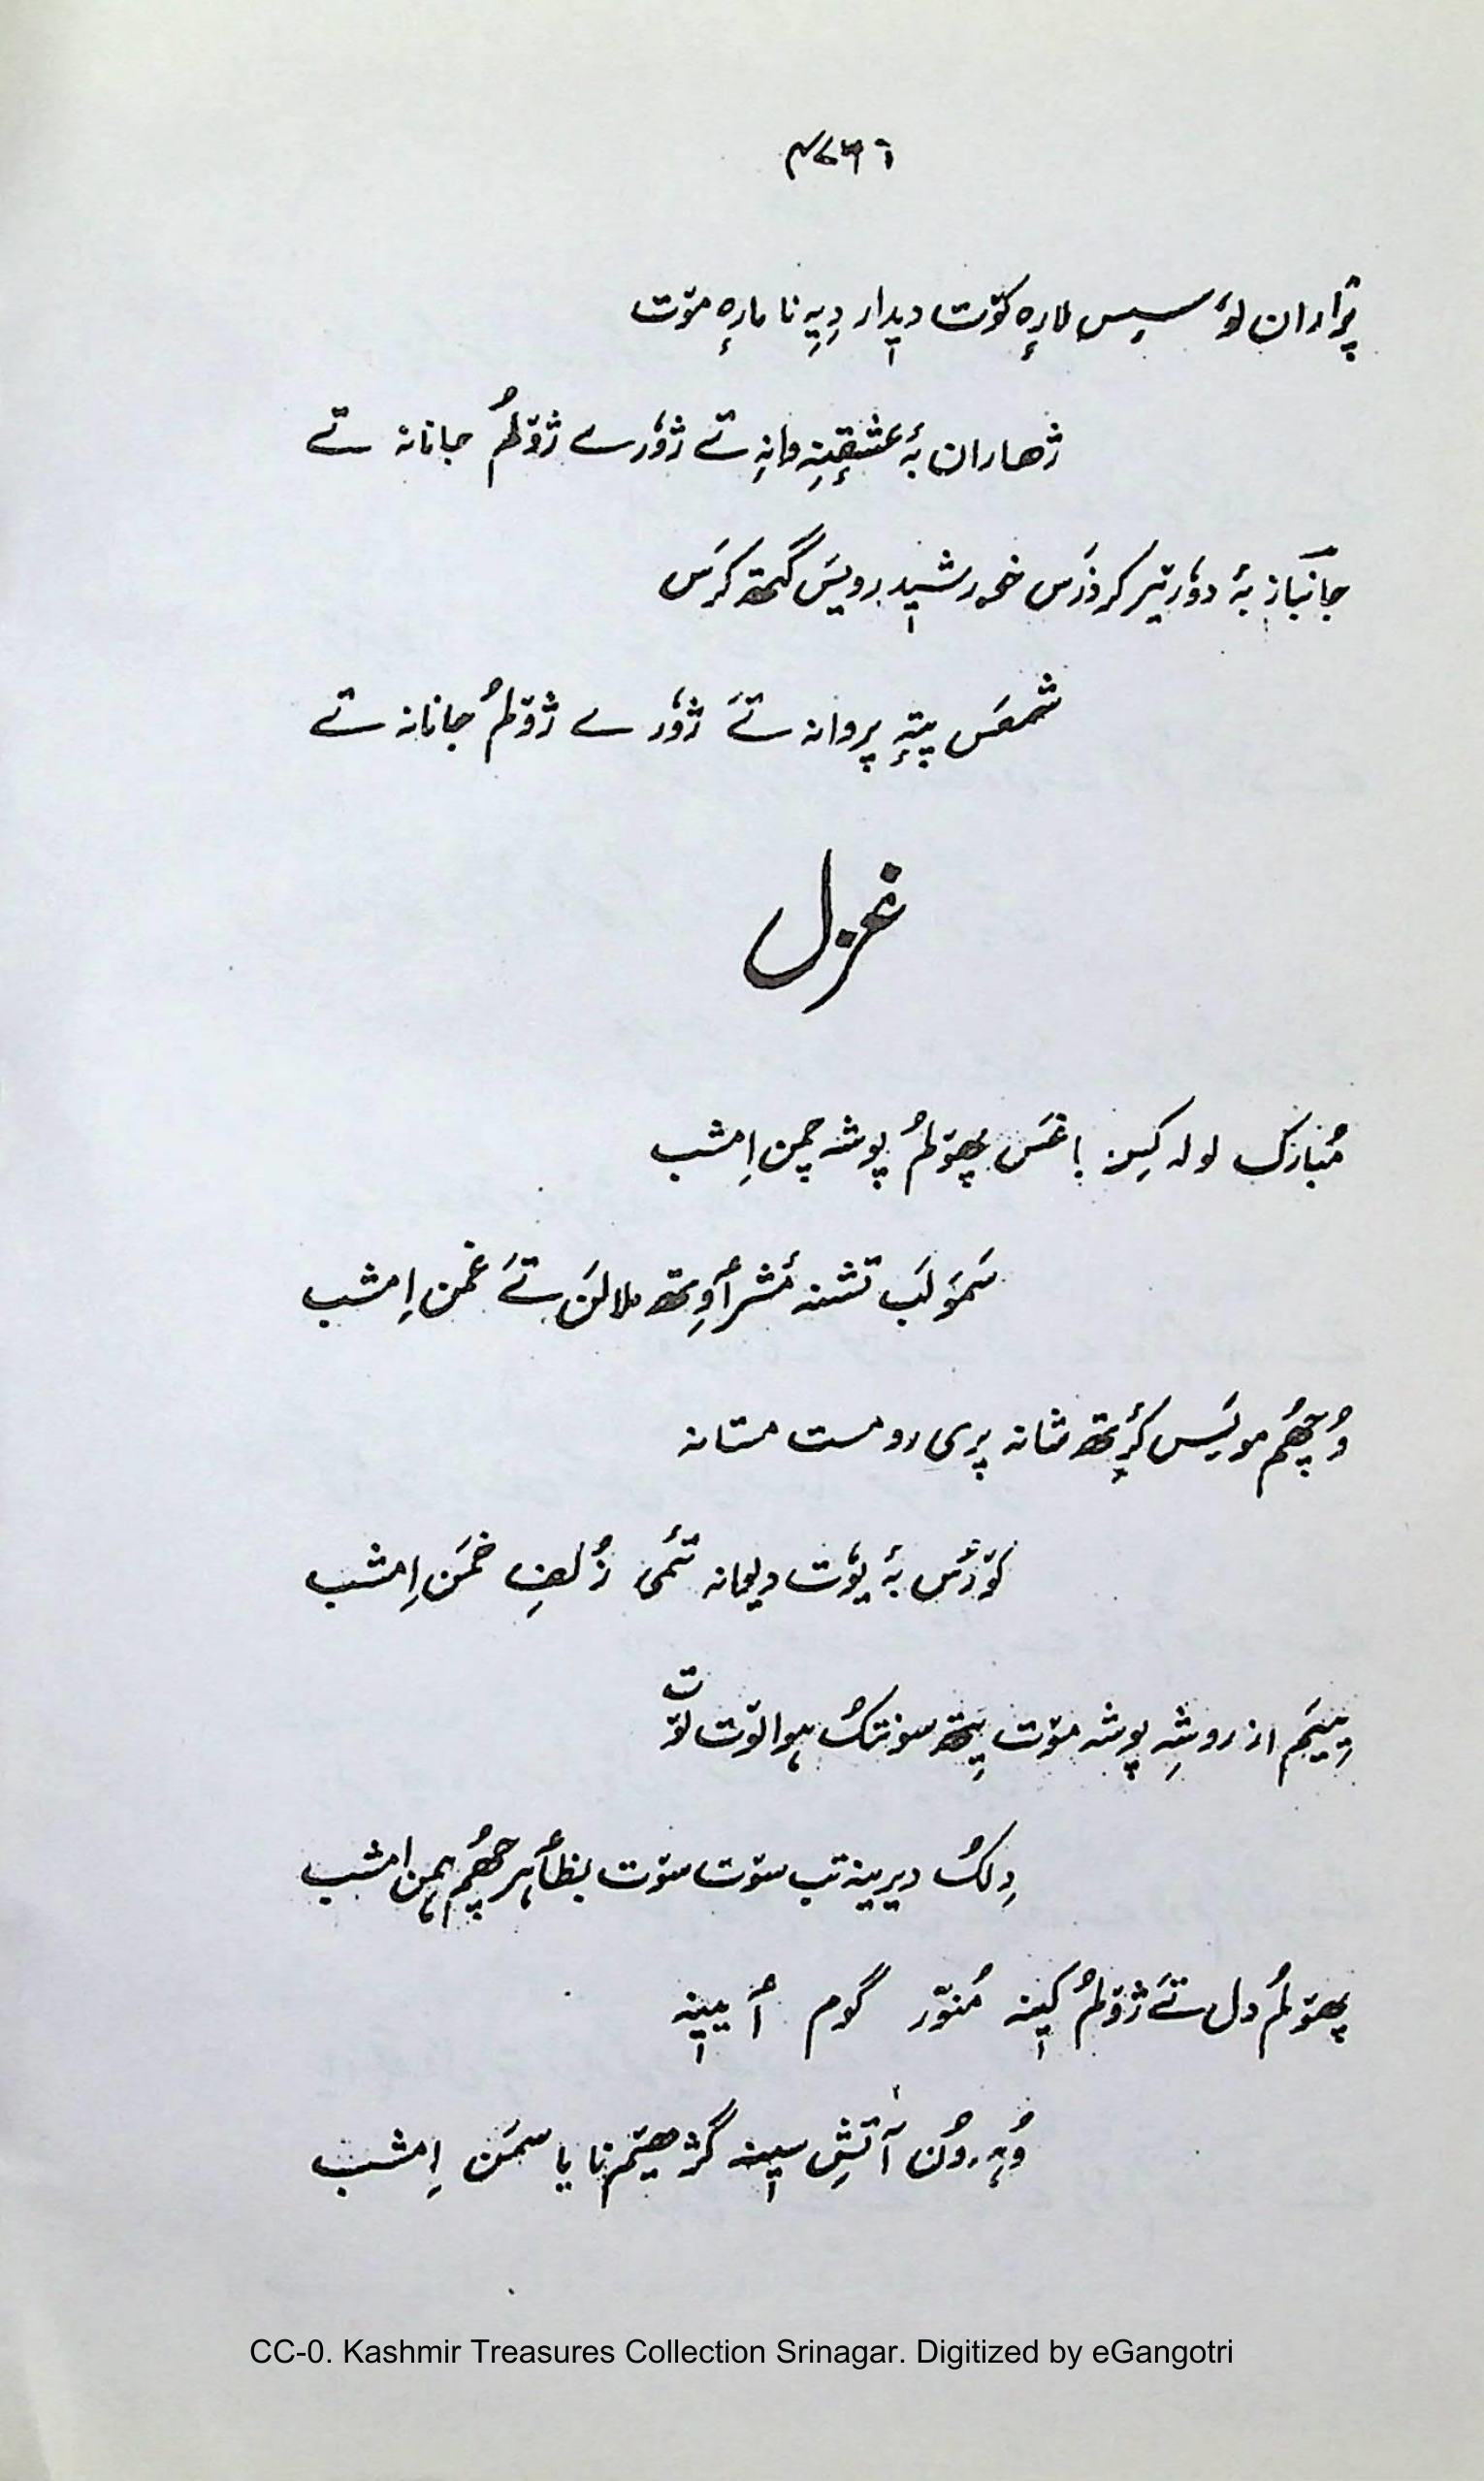 پرٛاران لوٗسیس لارِہ کوٚت دیٖدار دِیِہ نا مارِہ موٚت
ژھاران بہٕ عشقِنِہ وانِہ تے ژوٗرے ژوٚلمُ جانانہ تے
جانباز بہٕ دوٗرتیر کر ذرَس خورشیٖد رویَس گمتھ کرَس
شمعس پتہِ پروانہ تےَ ژوٗرے ژوٚلمُ جانانہ تے
غزل
مُبارک لولہ کین باغَس پھوٚلمُ پوشہ چمن اِمشب
سَموَ لَب تشنہ مٔشرٲوِتھ ملالَن تےَ غمن اِمشب
وُچھُم مویَس کٔرِتھ شانہ پری رو مست مستانہ
کوٚرنس بہٕ یوٗت دیوانہ تٔمی زُلفِ خمَن اِمشب
یِییَم از روشِہ پوشہ موٚت یِتھ سونتکُ ہوا لوٚت لوٚت
دِلکُ دیرینہ تب سوٚت سوٚت بظٲہر چھُم ہمن اِمشب
پھوٚلمُ دل تےَ ژوٚلمُ کیٖنہ مُنوّر گوم ٲییٖنہ
وُہرِوُن آتشِ سیٖنہ گژھیٚم نا یا سمَن اِمشب
CC-0. Kashmir Treasures Collection Srinagar. Digitized by eGangotri